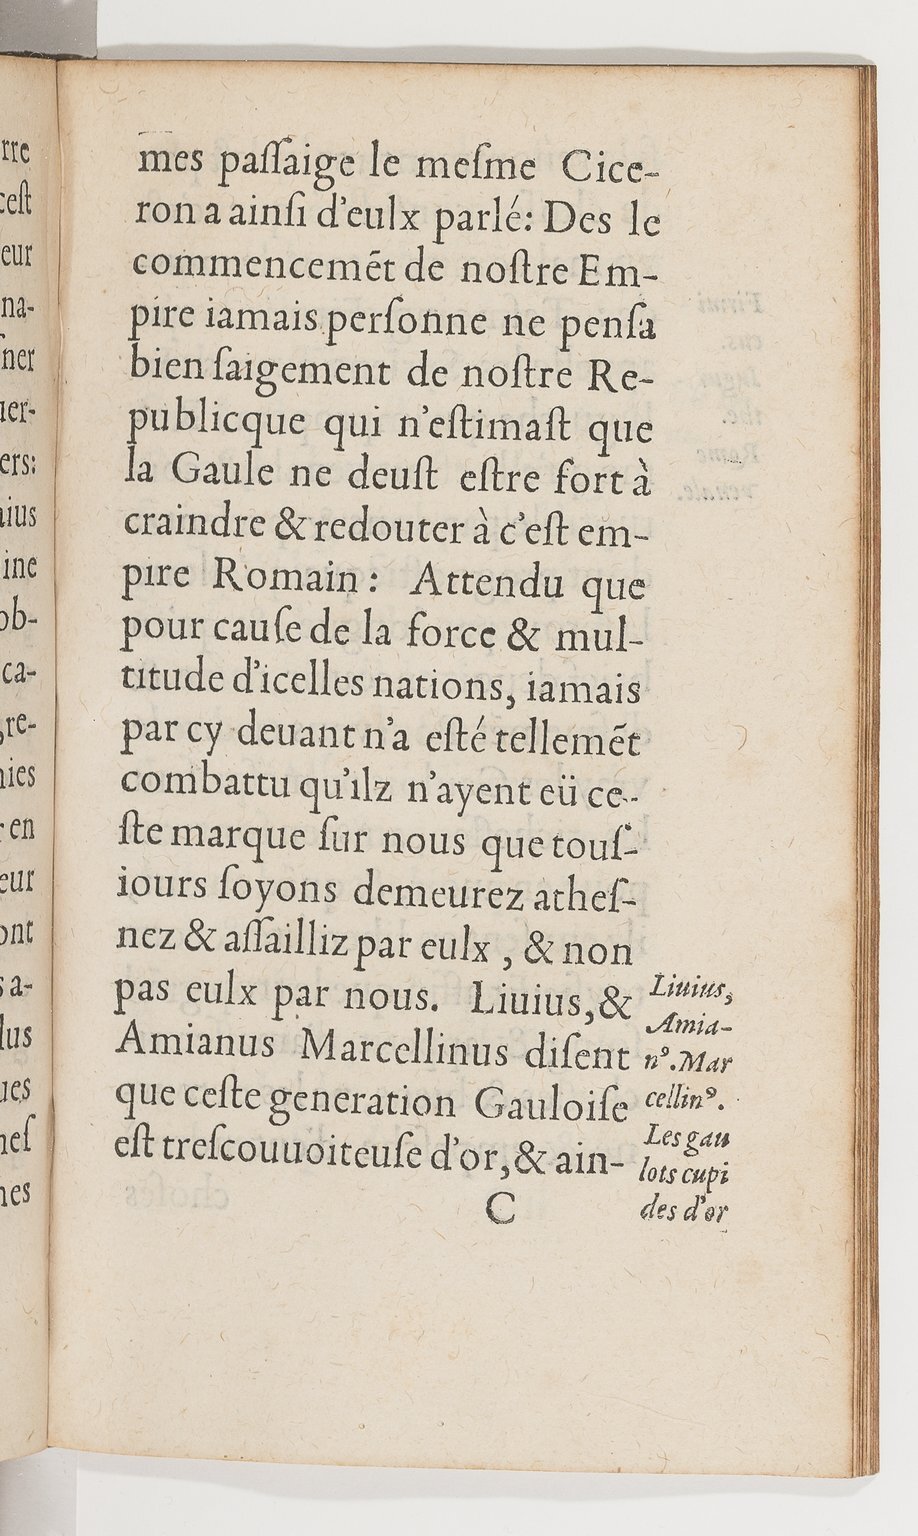 mes paſſaige le meſme Cice-
ron a ainſi d'eulx parlé: Des le
commencemẽt de noſtre Em-
pire iamais perſonne ne penſa
bien ſaigement de noſtre Re-
publicque qui n'eſtimaſt que
la Gaule ne deuſt eſtre fort à
craindre & redouter à c'eſt em-
pire Romain: Attendu que
pour cauſe de la force & mul-
titude d'icelles nations, iamais
par cy deuant n'a eſté tellemẽt
combattu qu'ilz n'ayent eü ce-
ſte marque ſur nous que touſ-
iours ſoyons demeurez atheſ-
nez & aſſailliz par eulx, & non
pas eulx par nous. Liuius, &
Amianus Marcellinus diſent
que ceſte generation Gauloiſe
eſt treſcouuoiteuſe d'or, & ain-
C
Liuius,
Amia-
nꝰ. Mar
cellinꝰ.
Les gau
lots cupi
des d'or
rre
ceſt
eur
na-
ner
uer-
ers:
ius
ine
ob-
ca-
,re-
nies
en
eur
ont
sa-
lus
ues
neſ
nes